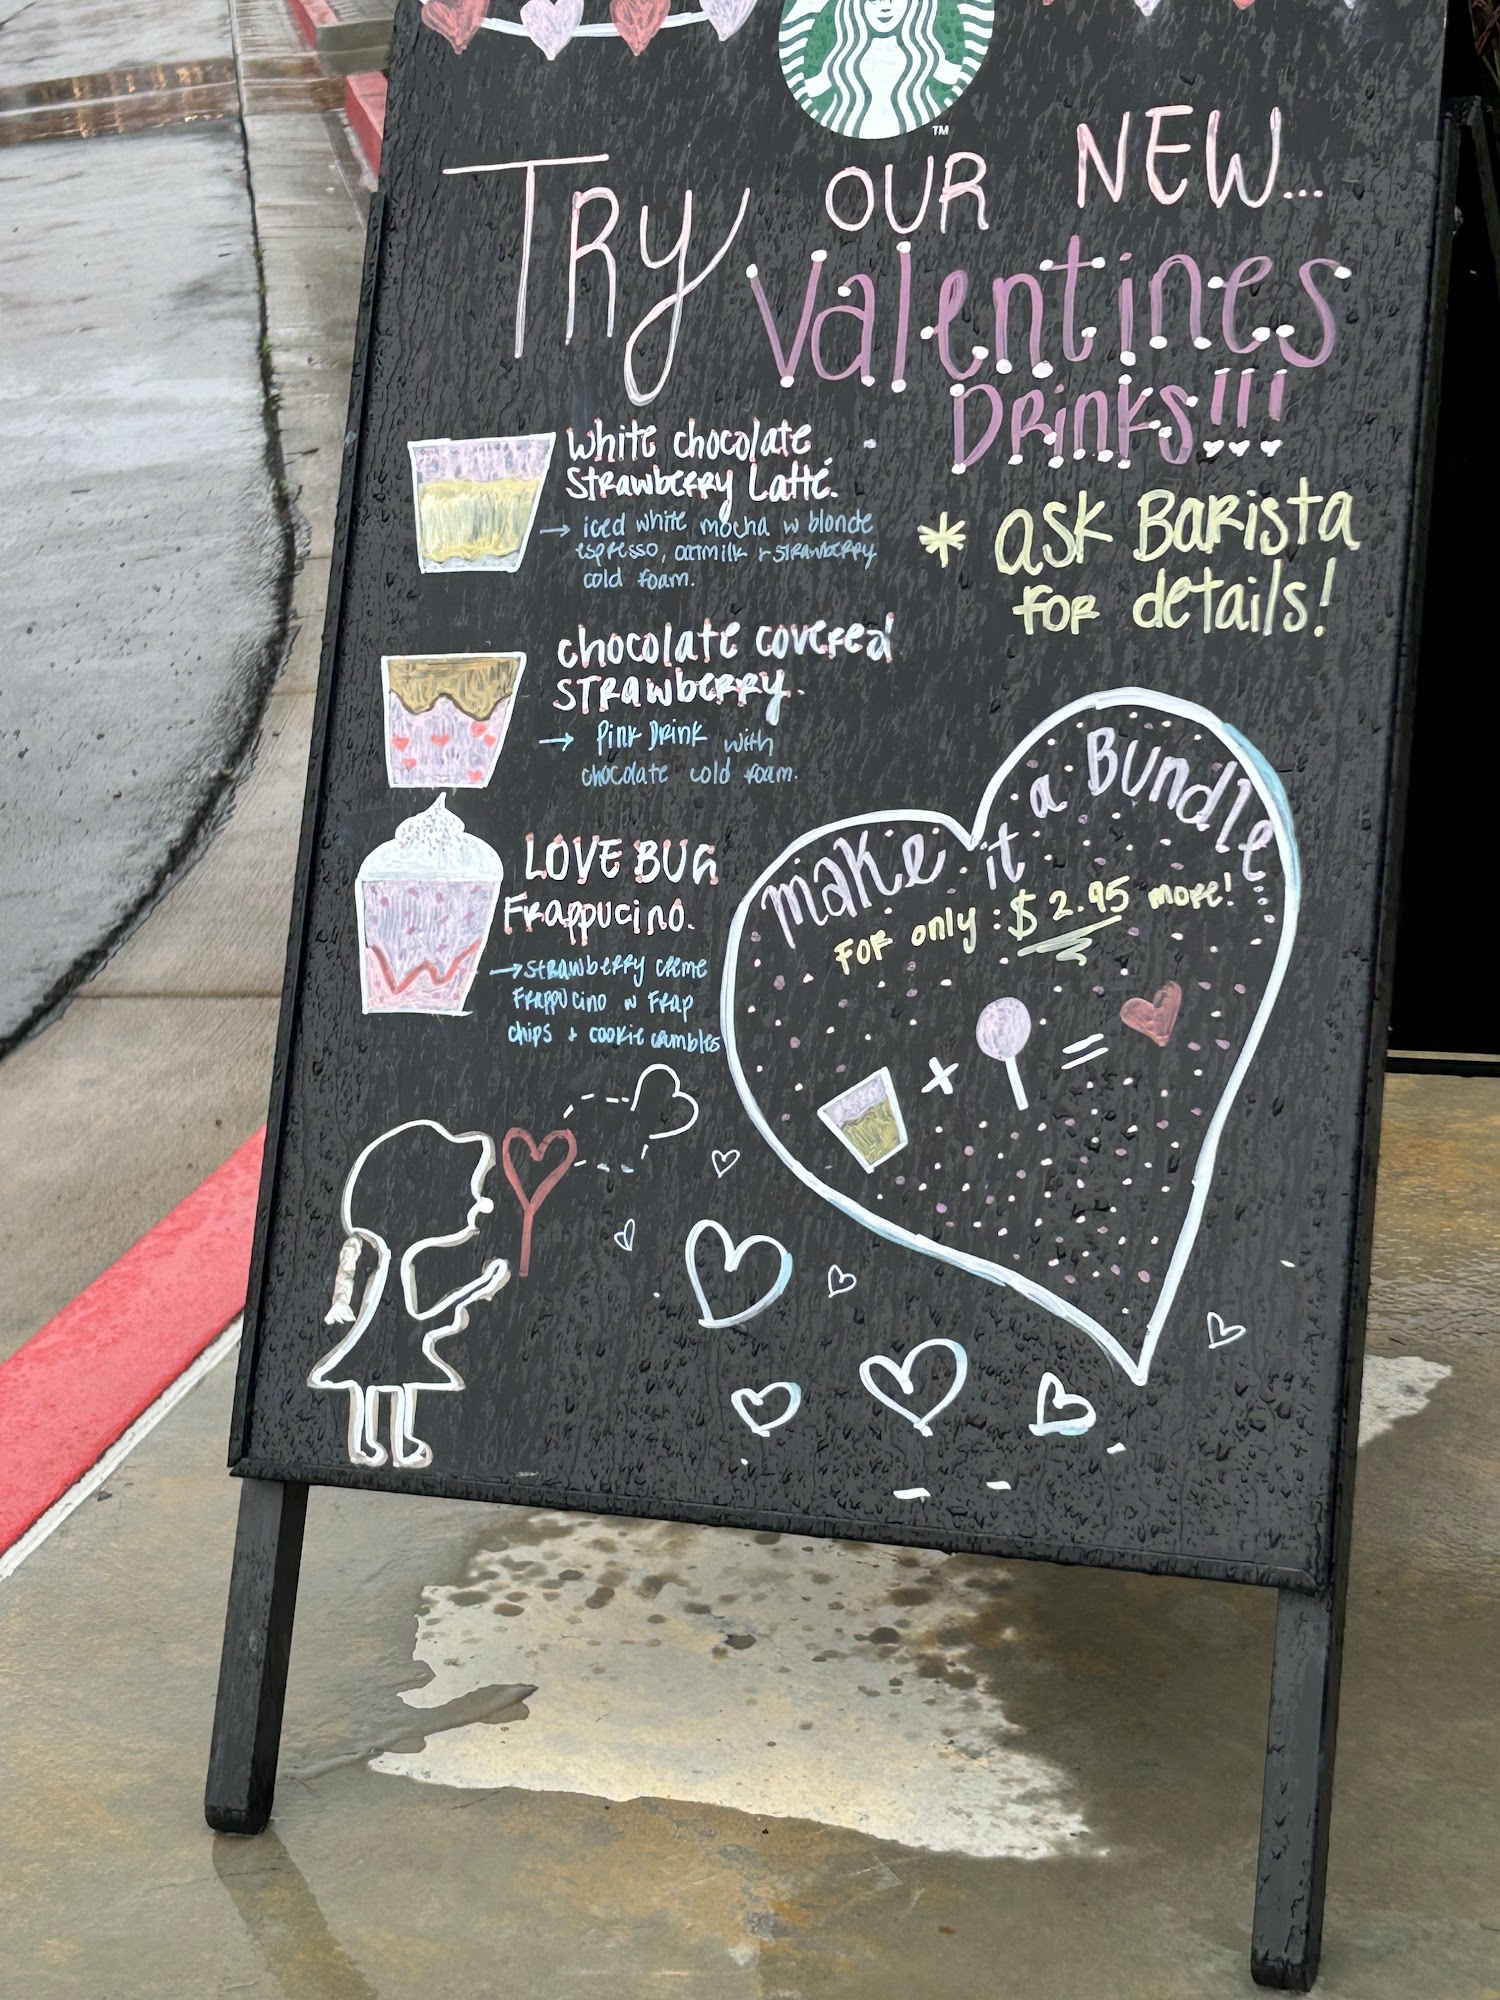 TM
TRy OUR NEW...
Valentines
DRinKs!!!
white chocolate
Strawberry Latte.
→ iced white mocha w blonde
espresso, oatmilk + strawberry
cold foam.
* ask Barista
for details!
chocolate covered
STRawberry.
→ Pink Drink with
chocolate cold foam.
LOVE BUG
Frappucino.
→ strawberry creme
Frappucino w Frap
chips + cookie crumbles
make it a Bundle
For only: $2.95 more!
+ =